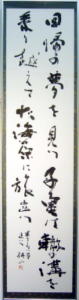 回帰の夢を見つ子亀は轍の溝を
乗り越えて大海原に旅立つ